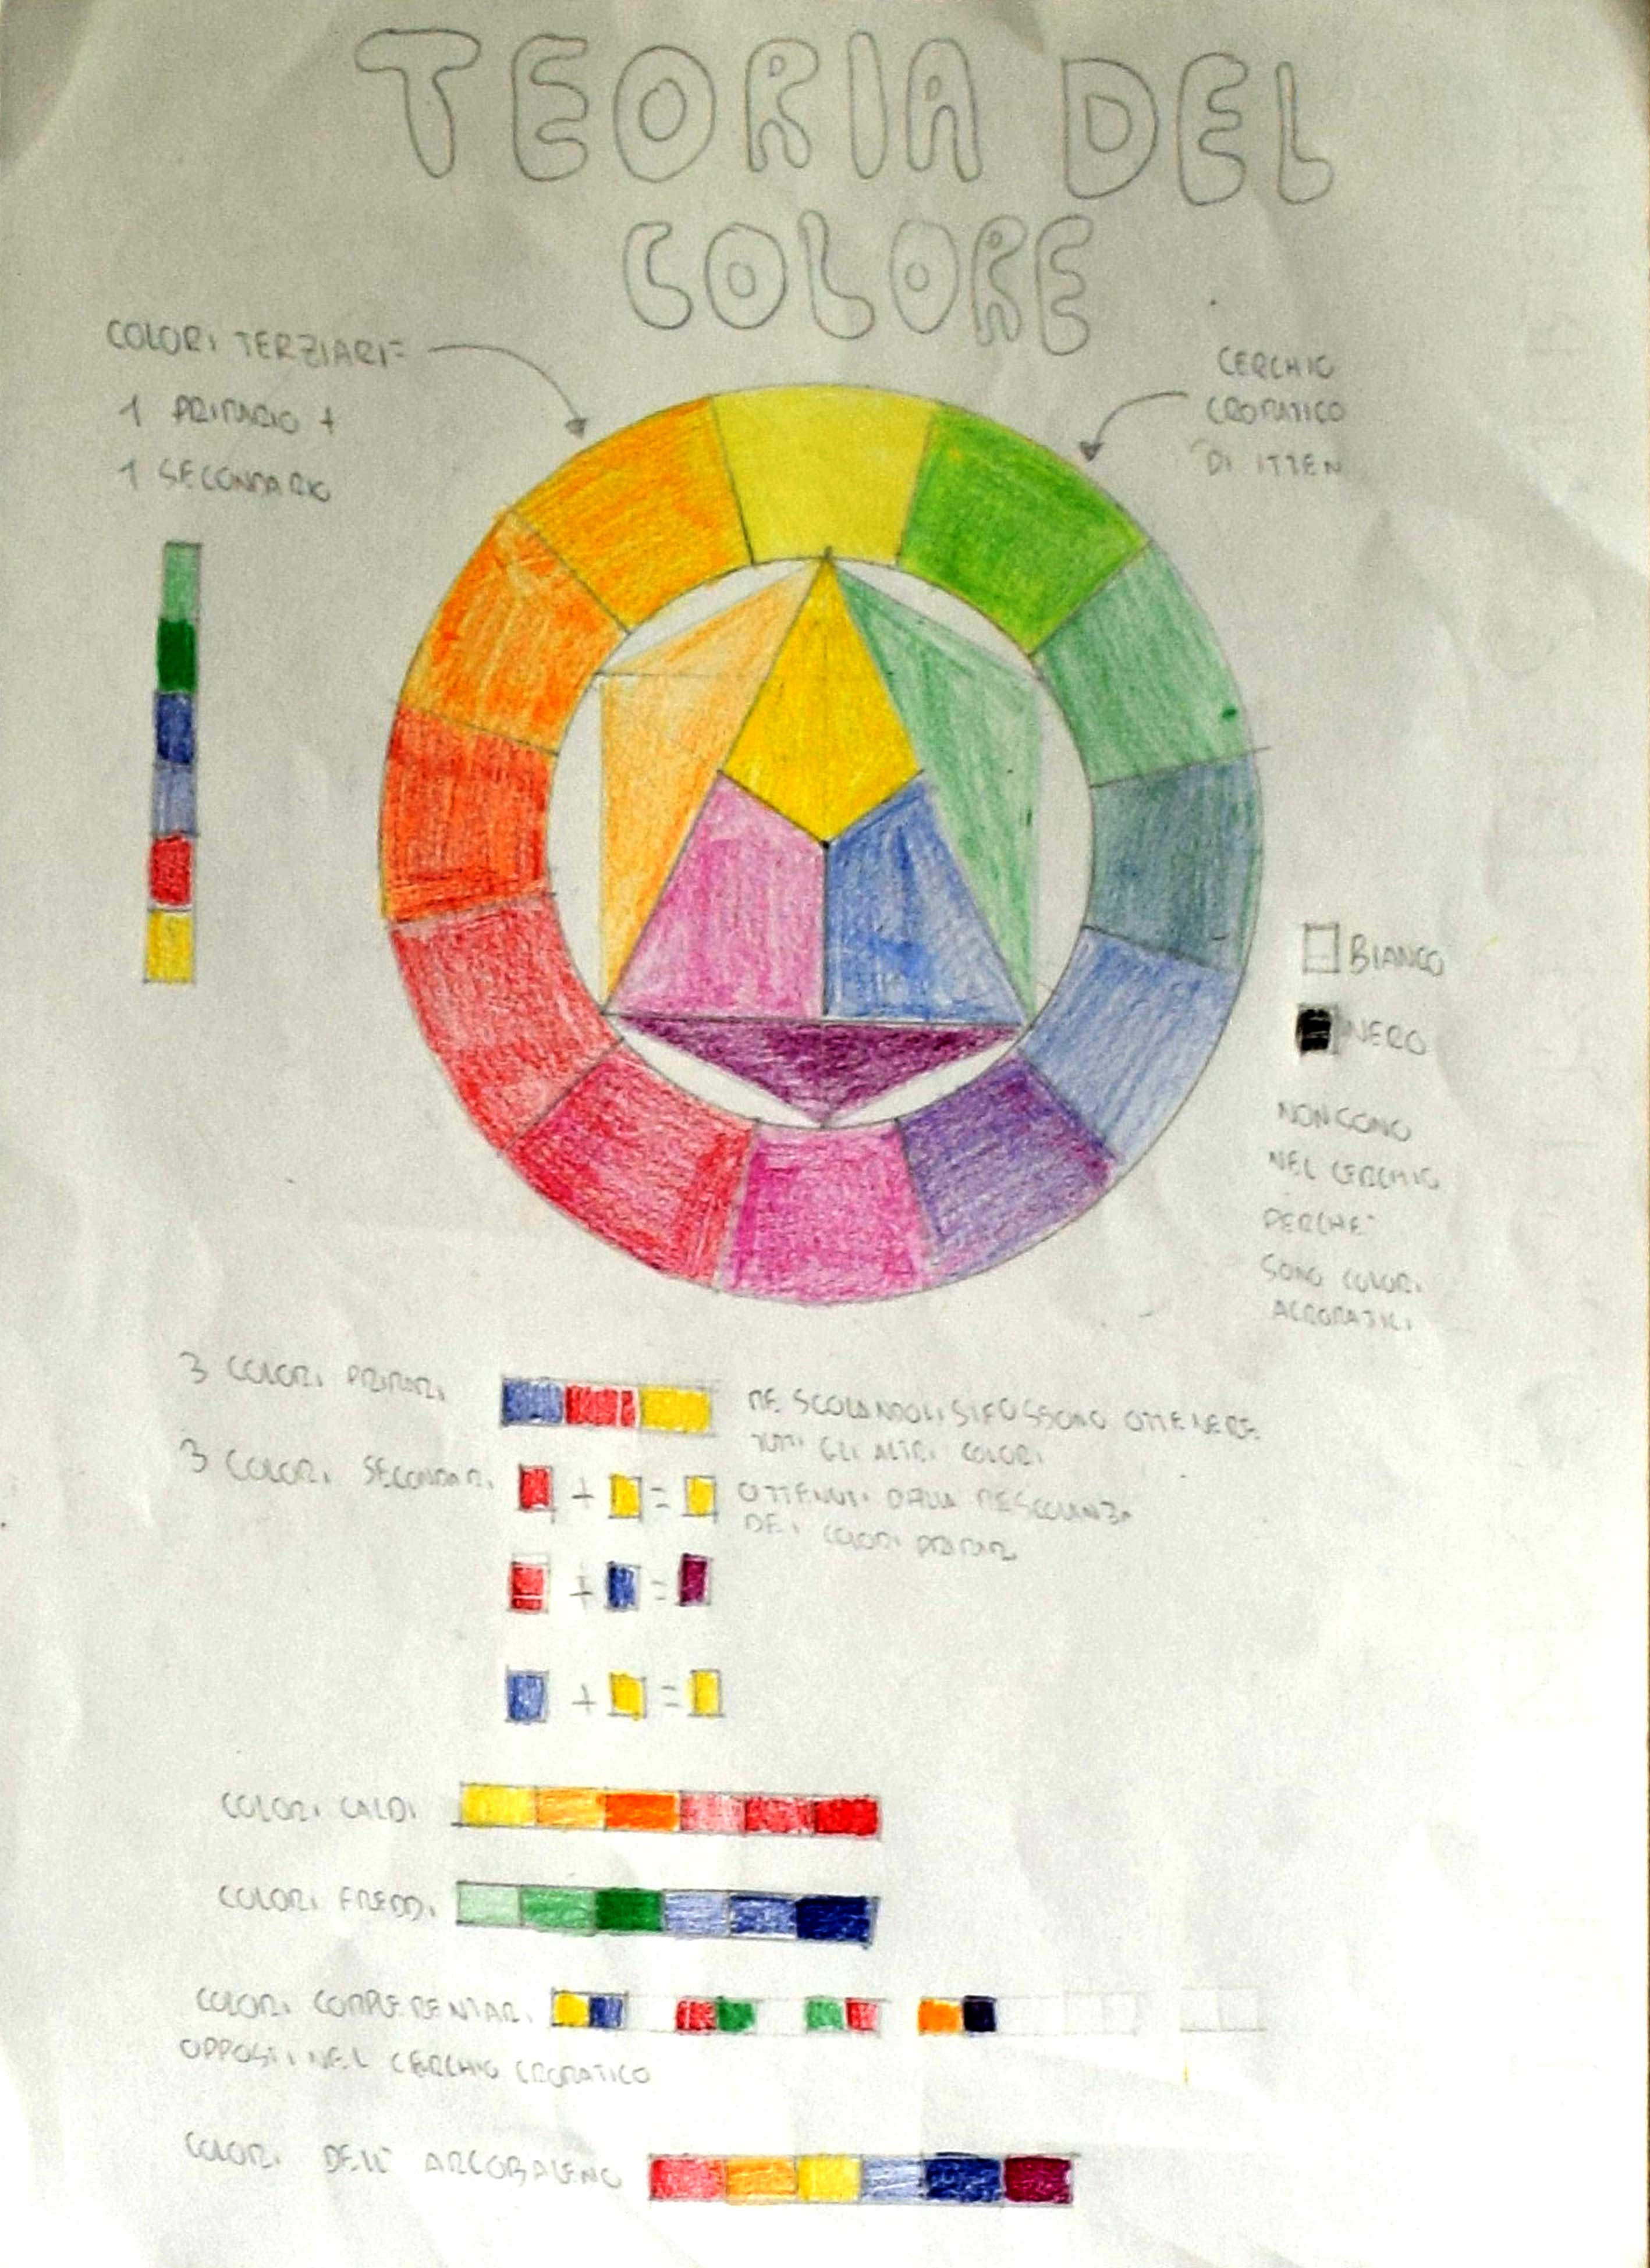 TEORIA DEL
COLORE
COLORI TERZIARI=
1 PRIMARIO +
1 SECONDARIO
CERCHIO
CROMATICO
DI ITTEN
BIANCO
NERO
NON SONO
NEL CERCHIO
PERCHE'
SONO COLORI
ACROMATICI
3 COLORI PRIMARI
MESCOLANDOLI SI POSSONO OTTENERE
TUTTI GLI ALTRI COLORI
3 COLORI SECONDARI
+ =
OTTENUTI DALLA MESCOLANZA
DEI COLORI PRIMARI
+ =
+ =
COLORI CALDI
COLORI FREDDI
COLORI COMPLEMENTARI
OPPOSTI NEL CERCHIO CROMATICO
COLORI DELL' ARCOBALENO